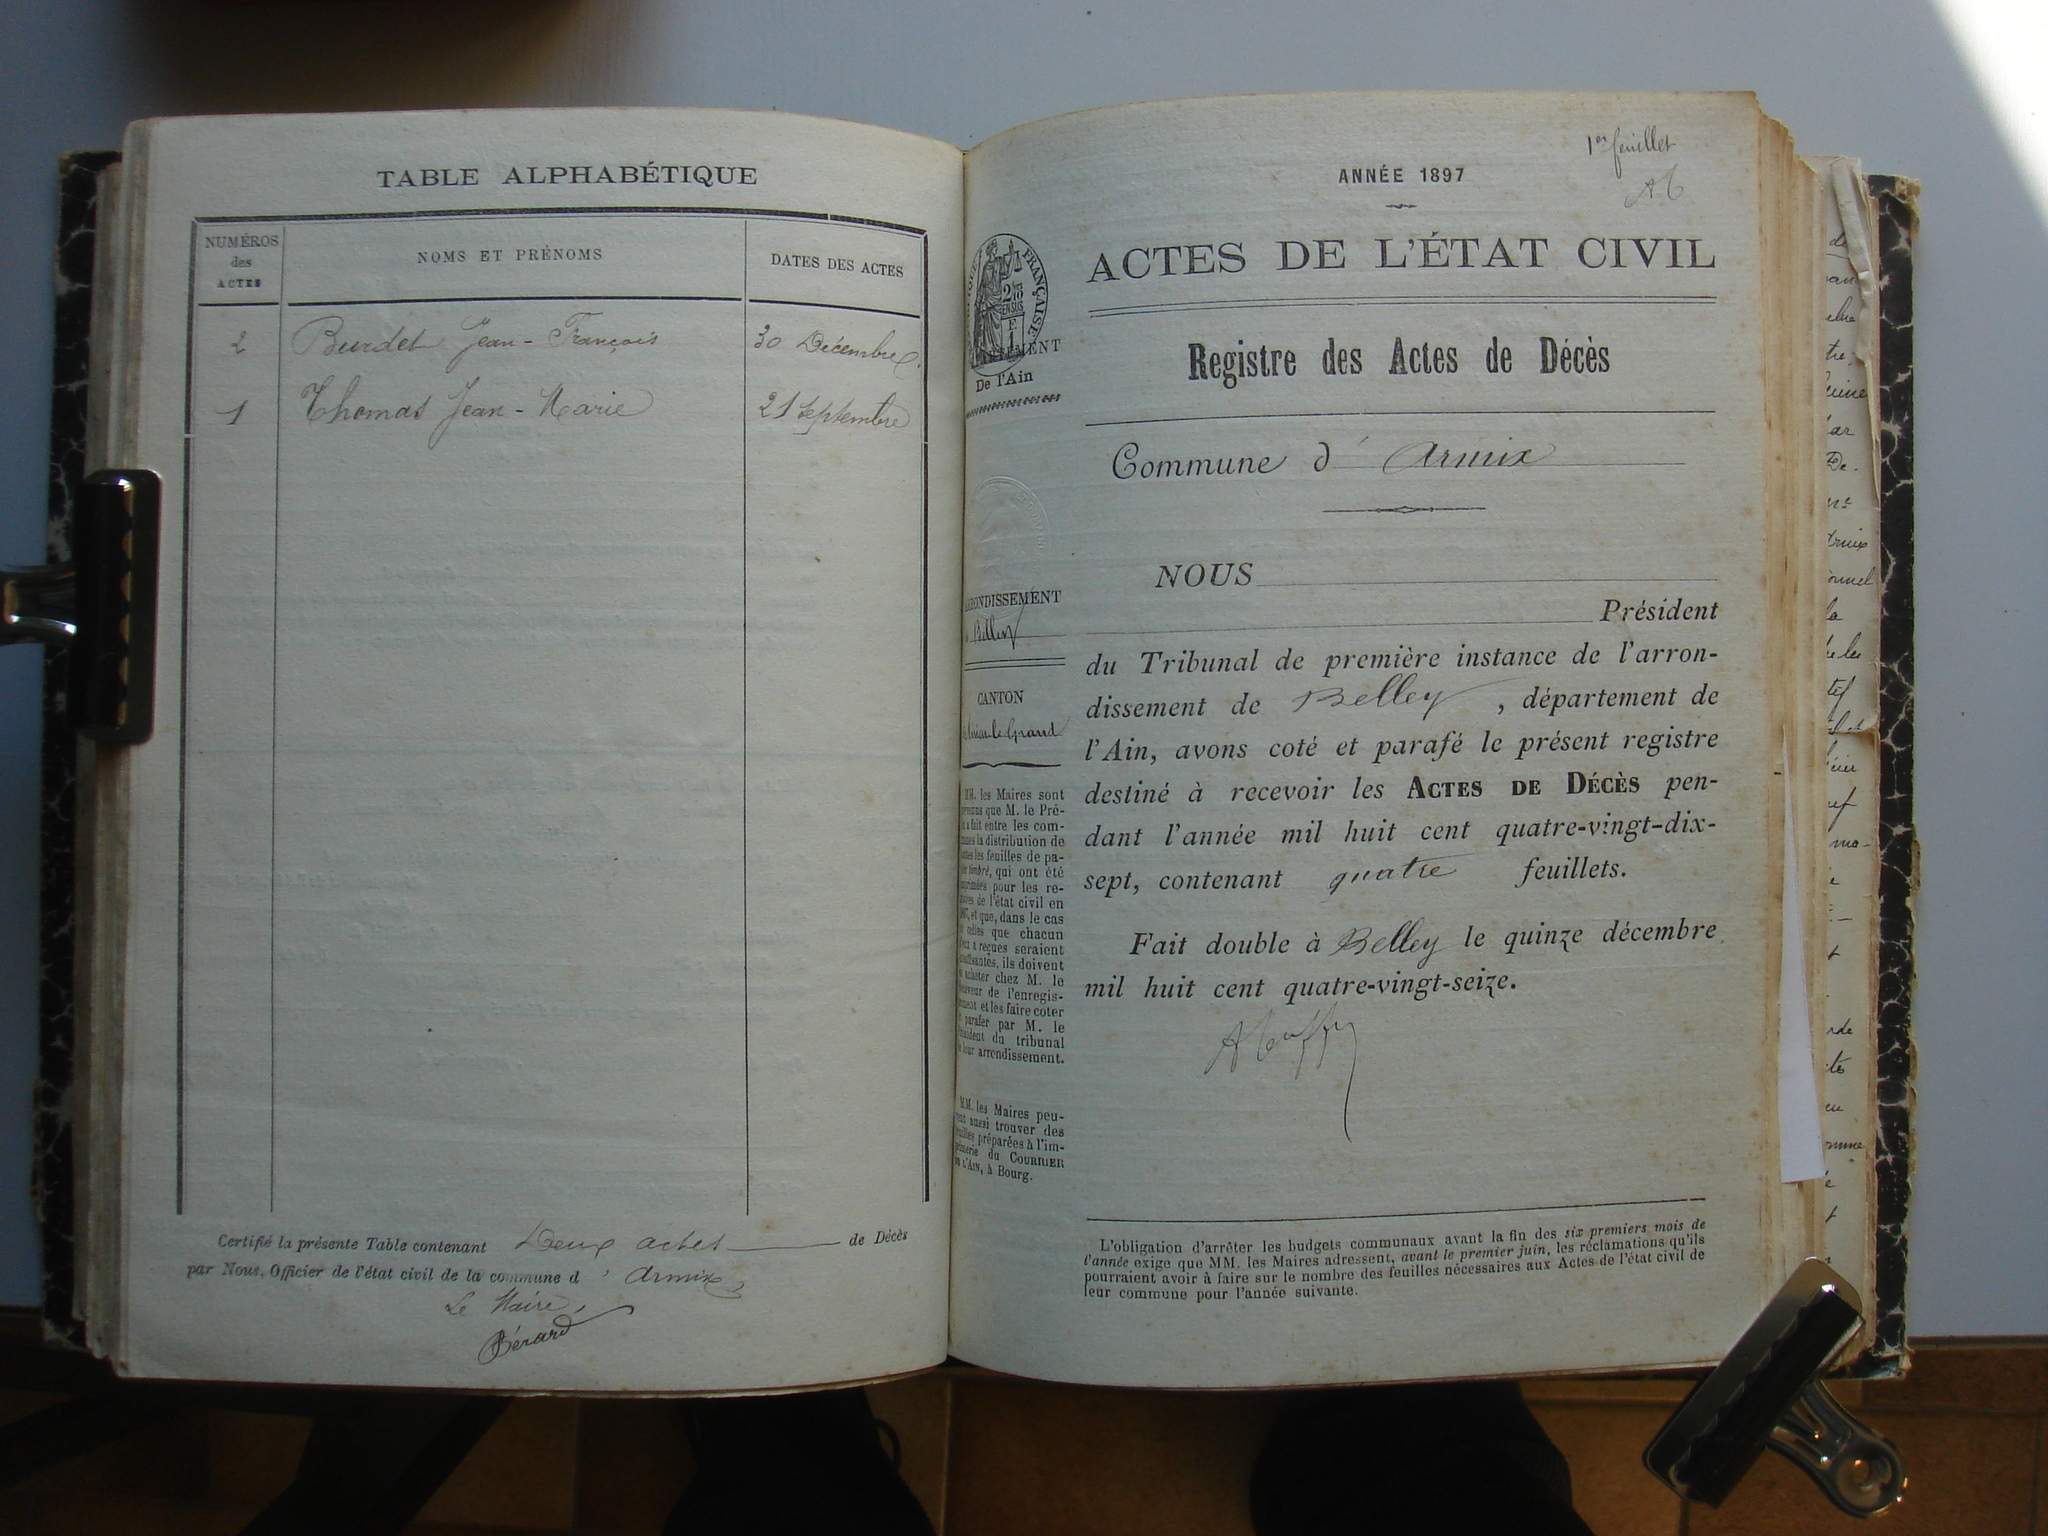 TABLE ALPHABÉTIQUE
NUMÉROS
des
ACTES
NOMS ET PRÉNOMS
DATES DES ACTES
2 Burdet Jean-François 30 Décembre
1 Thomas Jean-Marie 21 Septembre
Certifié la présente Table contenant Deux actes de Décès
par Nous, Officier de l'état civil de la commune d' Armix
Le Maire,
Bérard
1er feuillet
ANNÉE 1897
ACTES DE L'ÉTAT CIVIL
Registre des Actes de Décès
Commune d' Armix
NOUS
Président
du Tribunal de première instance de l'arron-
dissement de Belley, département de
l'Ain, avons coté et parafé le présent registre
destiné à recevoir les ACTES DE DÉCÈS pen-
dant l'année mil huit cent quatre-vingt-dix-
sept, contenant quatre feuillets.
Fait double à Belley le quinze décembre
mil huit cent quatre-vingt-seize.
L'obligation d'arrêter les budgets communaux avant la fin des six premiers mois de
l'année exige que MM. les Maires adressent, avant le premier juin, les réclamations qu'ils
pourraient avoir à faire sur le nombre des feuilles nécessaires aux Actes de l'état civil de
leur commune pour l'année suivante.
FRANÇAISE
De l'Ain
Belley
CANTON
le Grand
MM. les Maires sont
que M. le Pré-
a fait entre les com-
la distribution de
les feuilles de pa-
timbré, qui ont été
pour les re-
de l'état civil en
et que, dans le cas
celles que chacun
a reçues seraient
ils doivent
chez M. le
de l'enregis-
et les faire coter
parafer par M. le
du tribunal
arrondissement.
MM. les Maires peu-
aussi trouver des
préparées à l'im-
du COURRIER
DE L'AIN, à Bourg.